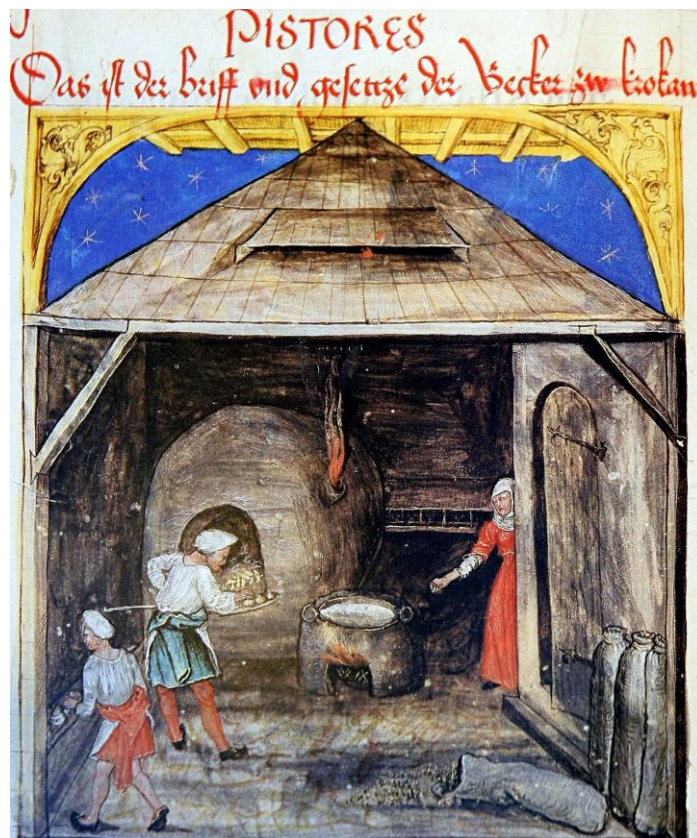 PISTORES
Das ist der briff vnd gesettze der Becker zw krokaw